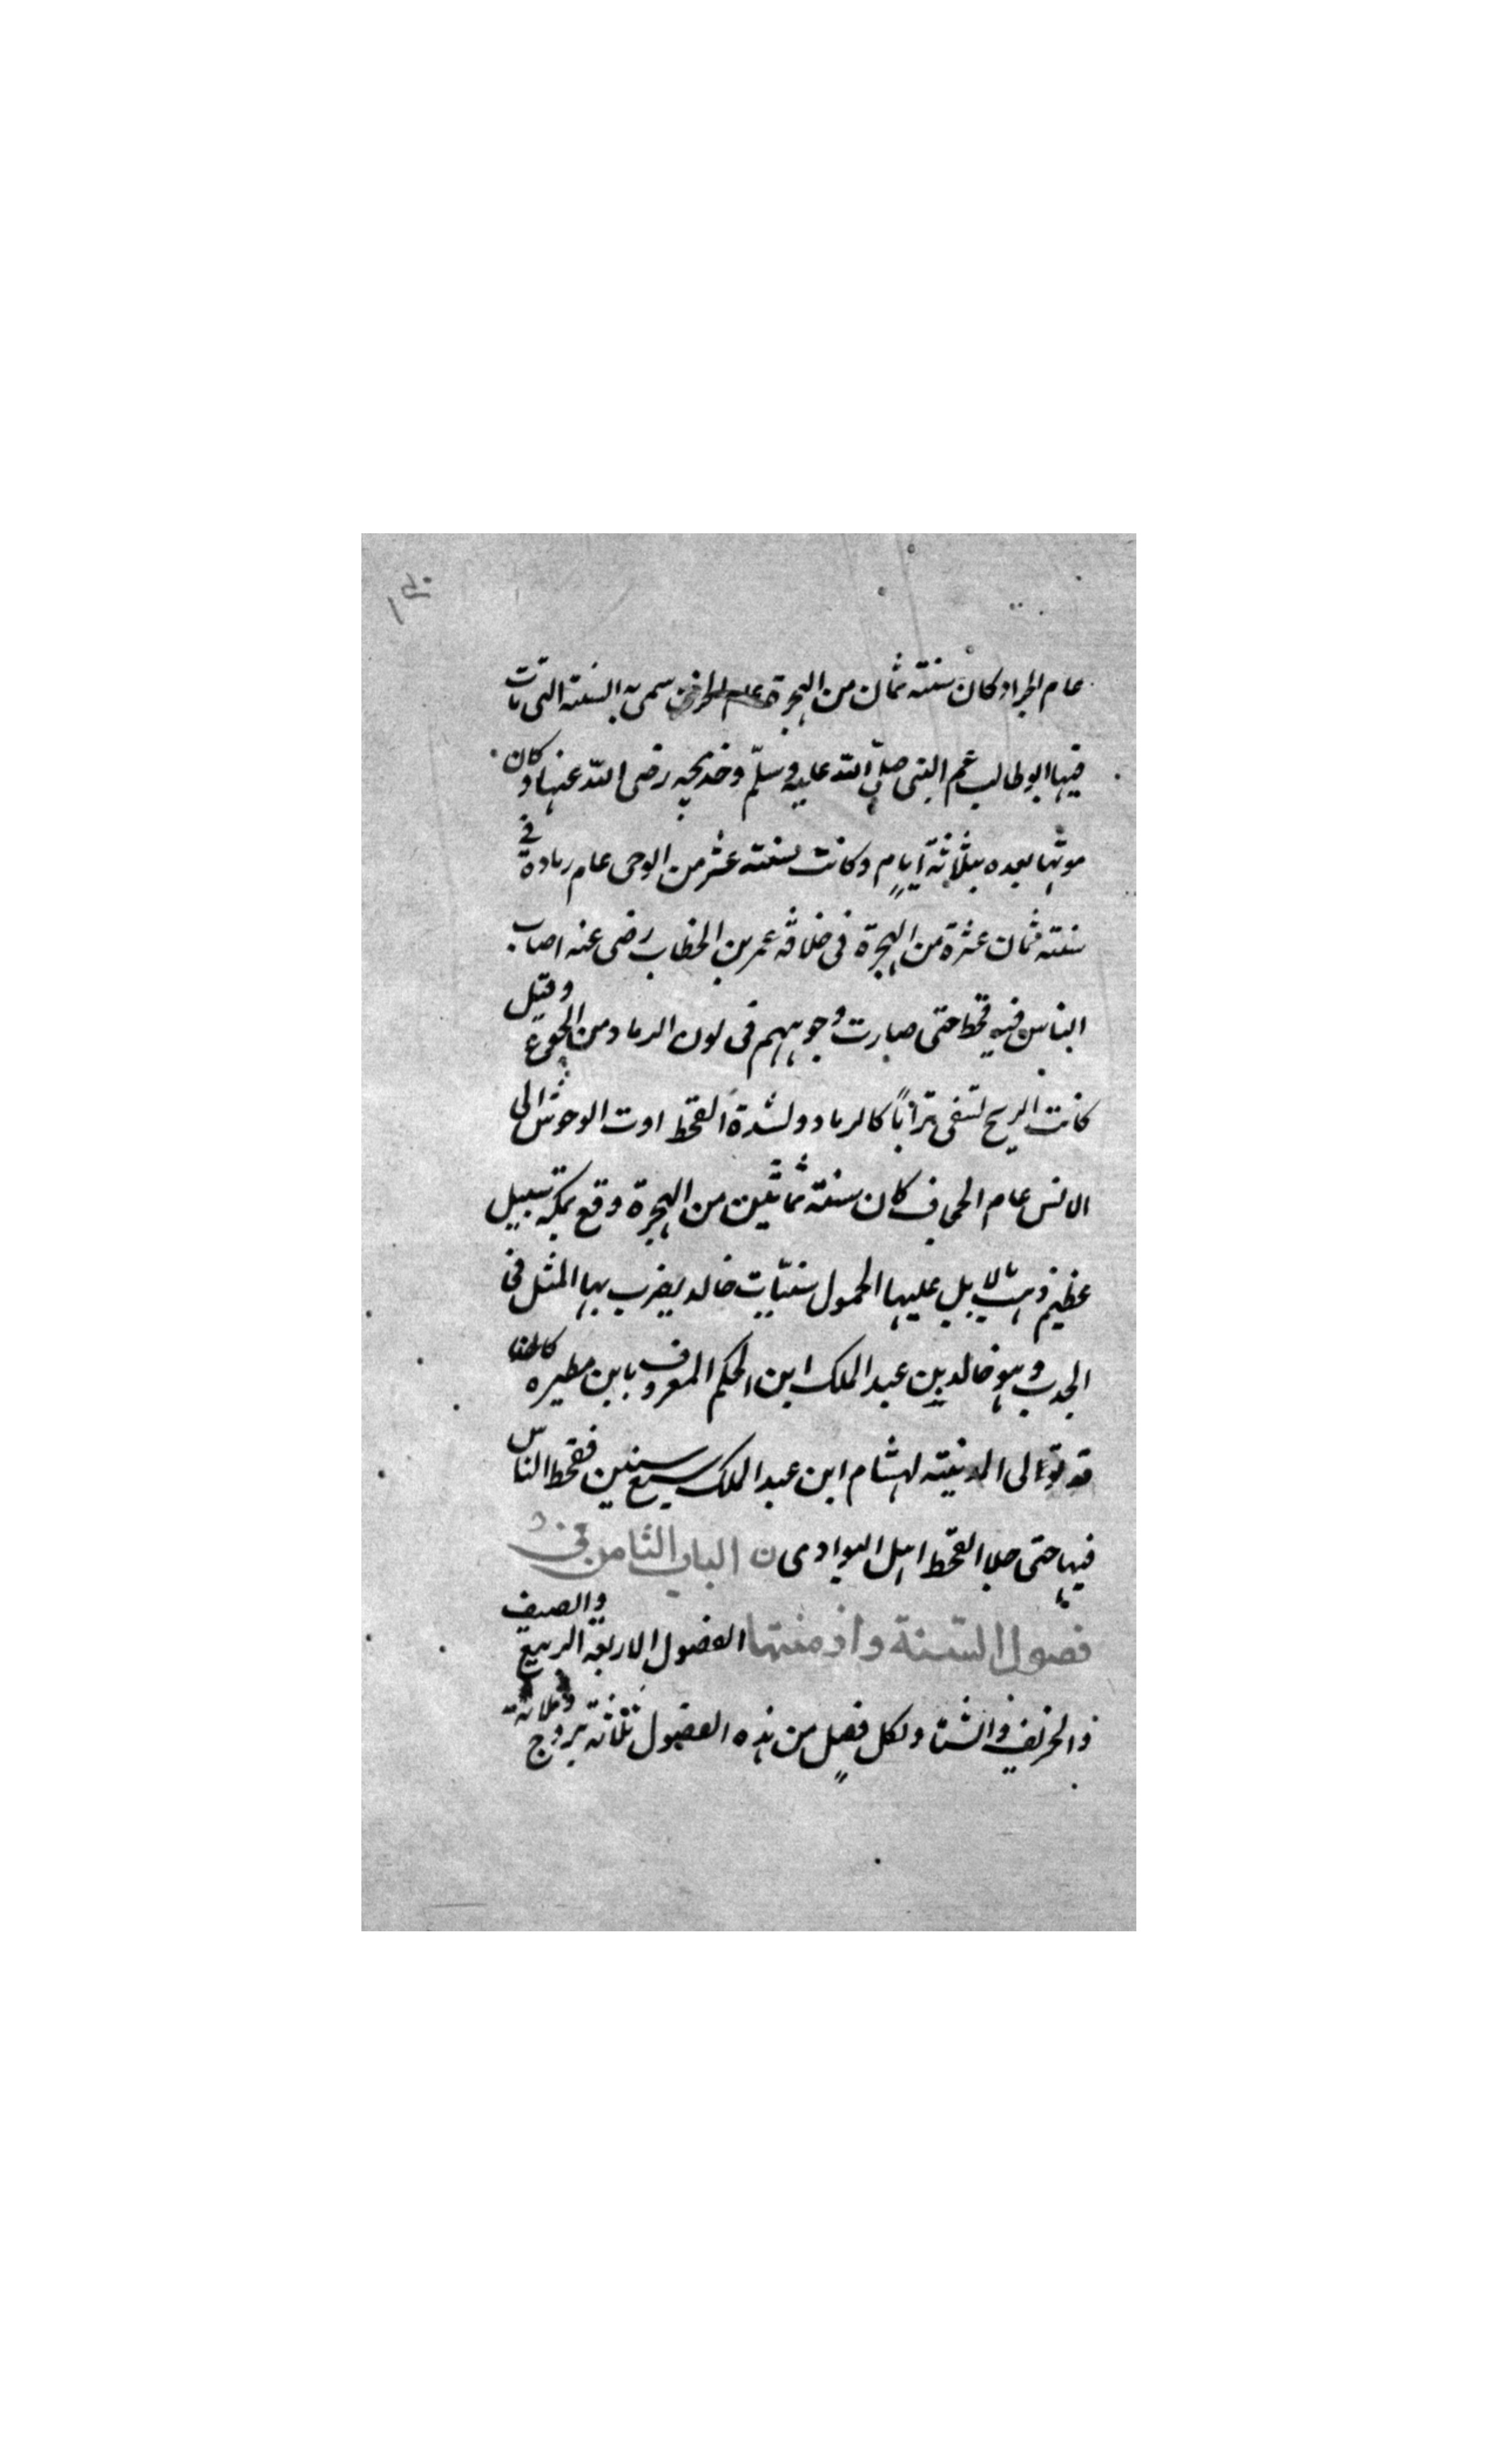 عام الجراد كان سنته ثمان من الهجرة عام الحزن سمى به السنته التى مات
فيها ابو طالب عم النبى صلى الله عليه وسلم وخديجه رضى الله عنها وكان
موتها بعده بثلاثة ايام وكانت لسنته عشر من الوحى عام رمادة فى
سنته ثمان عشرة من الهجرة فى خلافة عمر بن الخطاب رضى عنه اصاب
الناس فيه قحط حتى صارت وجوههم فى لون الرماد من الجوع وقيل
كانت الريح تسفى ترابًا كالرماد ولشدة القحط اوت الوحوش الى
الانس عام الجحاف كان سنته ثمانين من الهجرة وقع بمكه سيل
عظيم ذهبت الابل عليها الحمول سنيّات خالد يضرب بها المثل فى
الجدب وهو خالد بن عبد الملك ابن الحكم المعروف بابن مطيره كان
قد تولى المدينته لهشام ابن عبد الملك سبع سنين فقحط الناس
فيها حتى جلا القحط اهل البوادى ن الباب الثامن فى
فصول السنة وازمنتها الفصول الاربعة الربيع والصيف
والخريف والشتا ولكل فصل من هذه الفصول ثلثة بروج وثلاثة